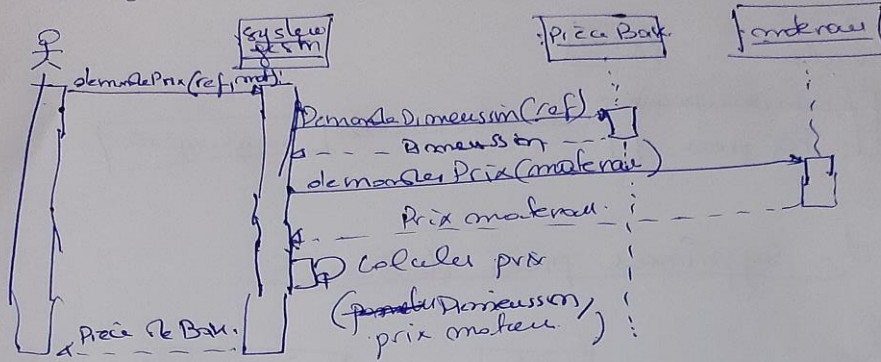 système
gestion
:Pièce Base
:materiau
demandePrix(ref, mat):
DemandeDimenssion(ref)
Dimenssion
demander Prix(materiau)
Prix materiau.
Calculer prix
(Dimenssion,
prix materiau)
Pièce de Base.